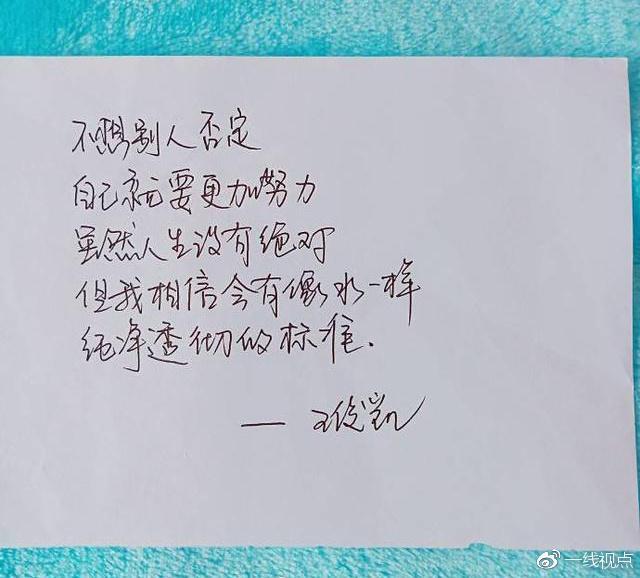 不想别人否定
自己就要更加努力
虽然人生没有绝对
但我相信会有像水一样
纯净透彻的标准.
— 王俊凯
一线视点